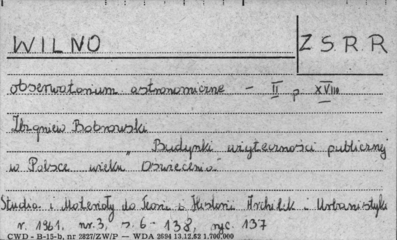 WILNO
Z S. R. R
obserwatorium astronomiczne - II p XVIII
Zbigniew Bobrowski
„Budynki użyteczności publicznej
w Polsce wieku Oświecenia"
Studia i Materiały do Teorii i Historii Archilek i Urbanistyki
r. 1961, nr. 3, s. 6 - 138, ryc. 137
CWD - B-15-b, nr 3827/ZW/P — WDA 2694 13.12.52 1.700.000